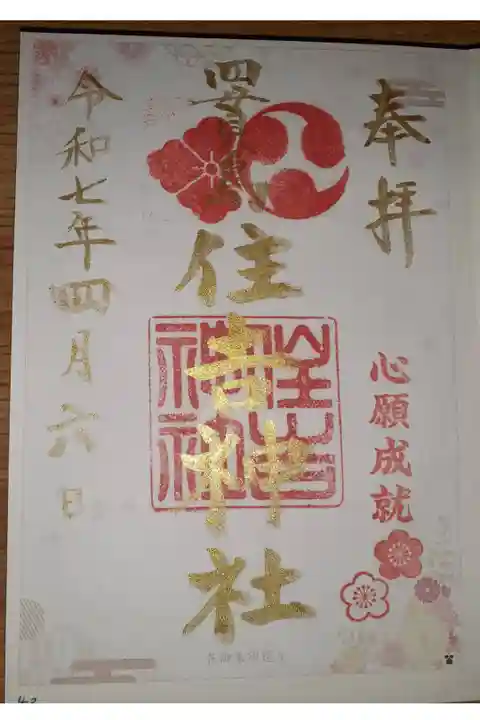 奉拝
心願成就
住吉神社
住吉
神社
令和七年四月六日